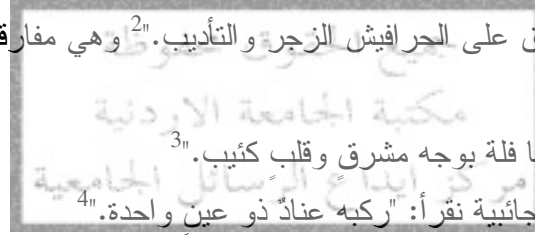 على الحرافيش الزجر والتأديب."2 وهي
جميع الحقوق محفوظة
مكتبة الجامعة الاردنية
فلة بوجه مشرقٍ وقلبٍ كئيب."3
مركز ايداع الرسائل الجامعية
نقرأ: "ركبه عنادٌ ذو عينٍ واحدة."4